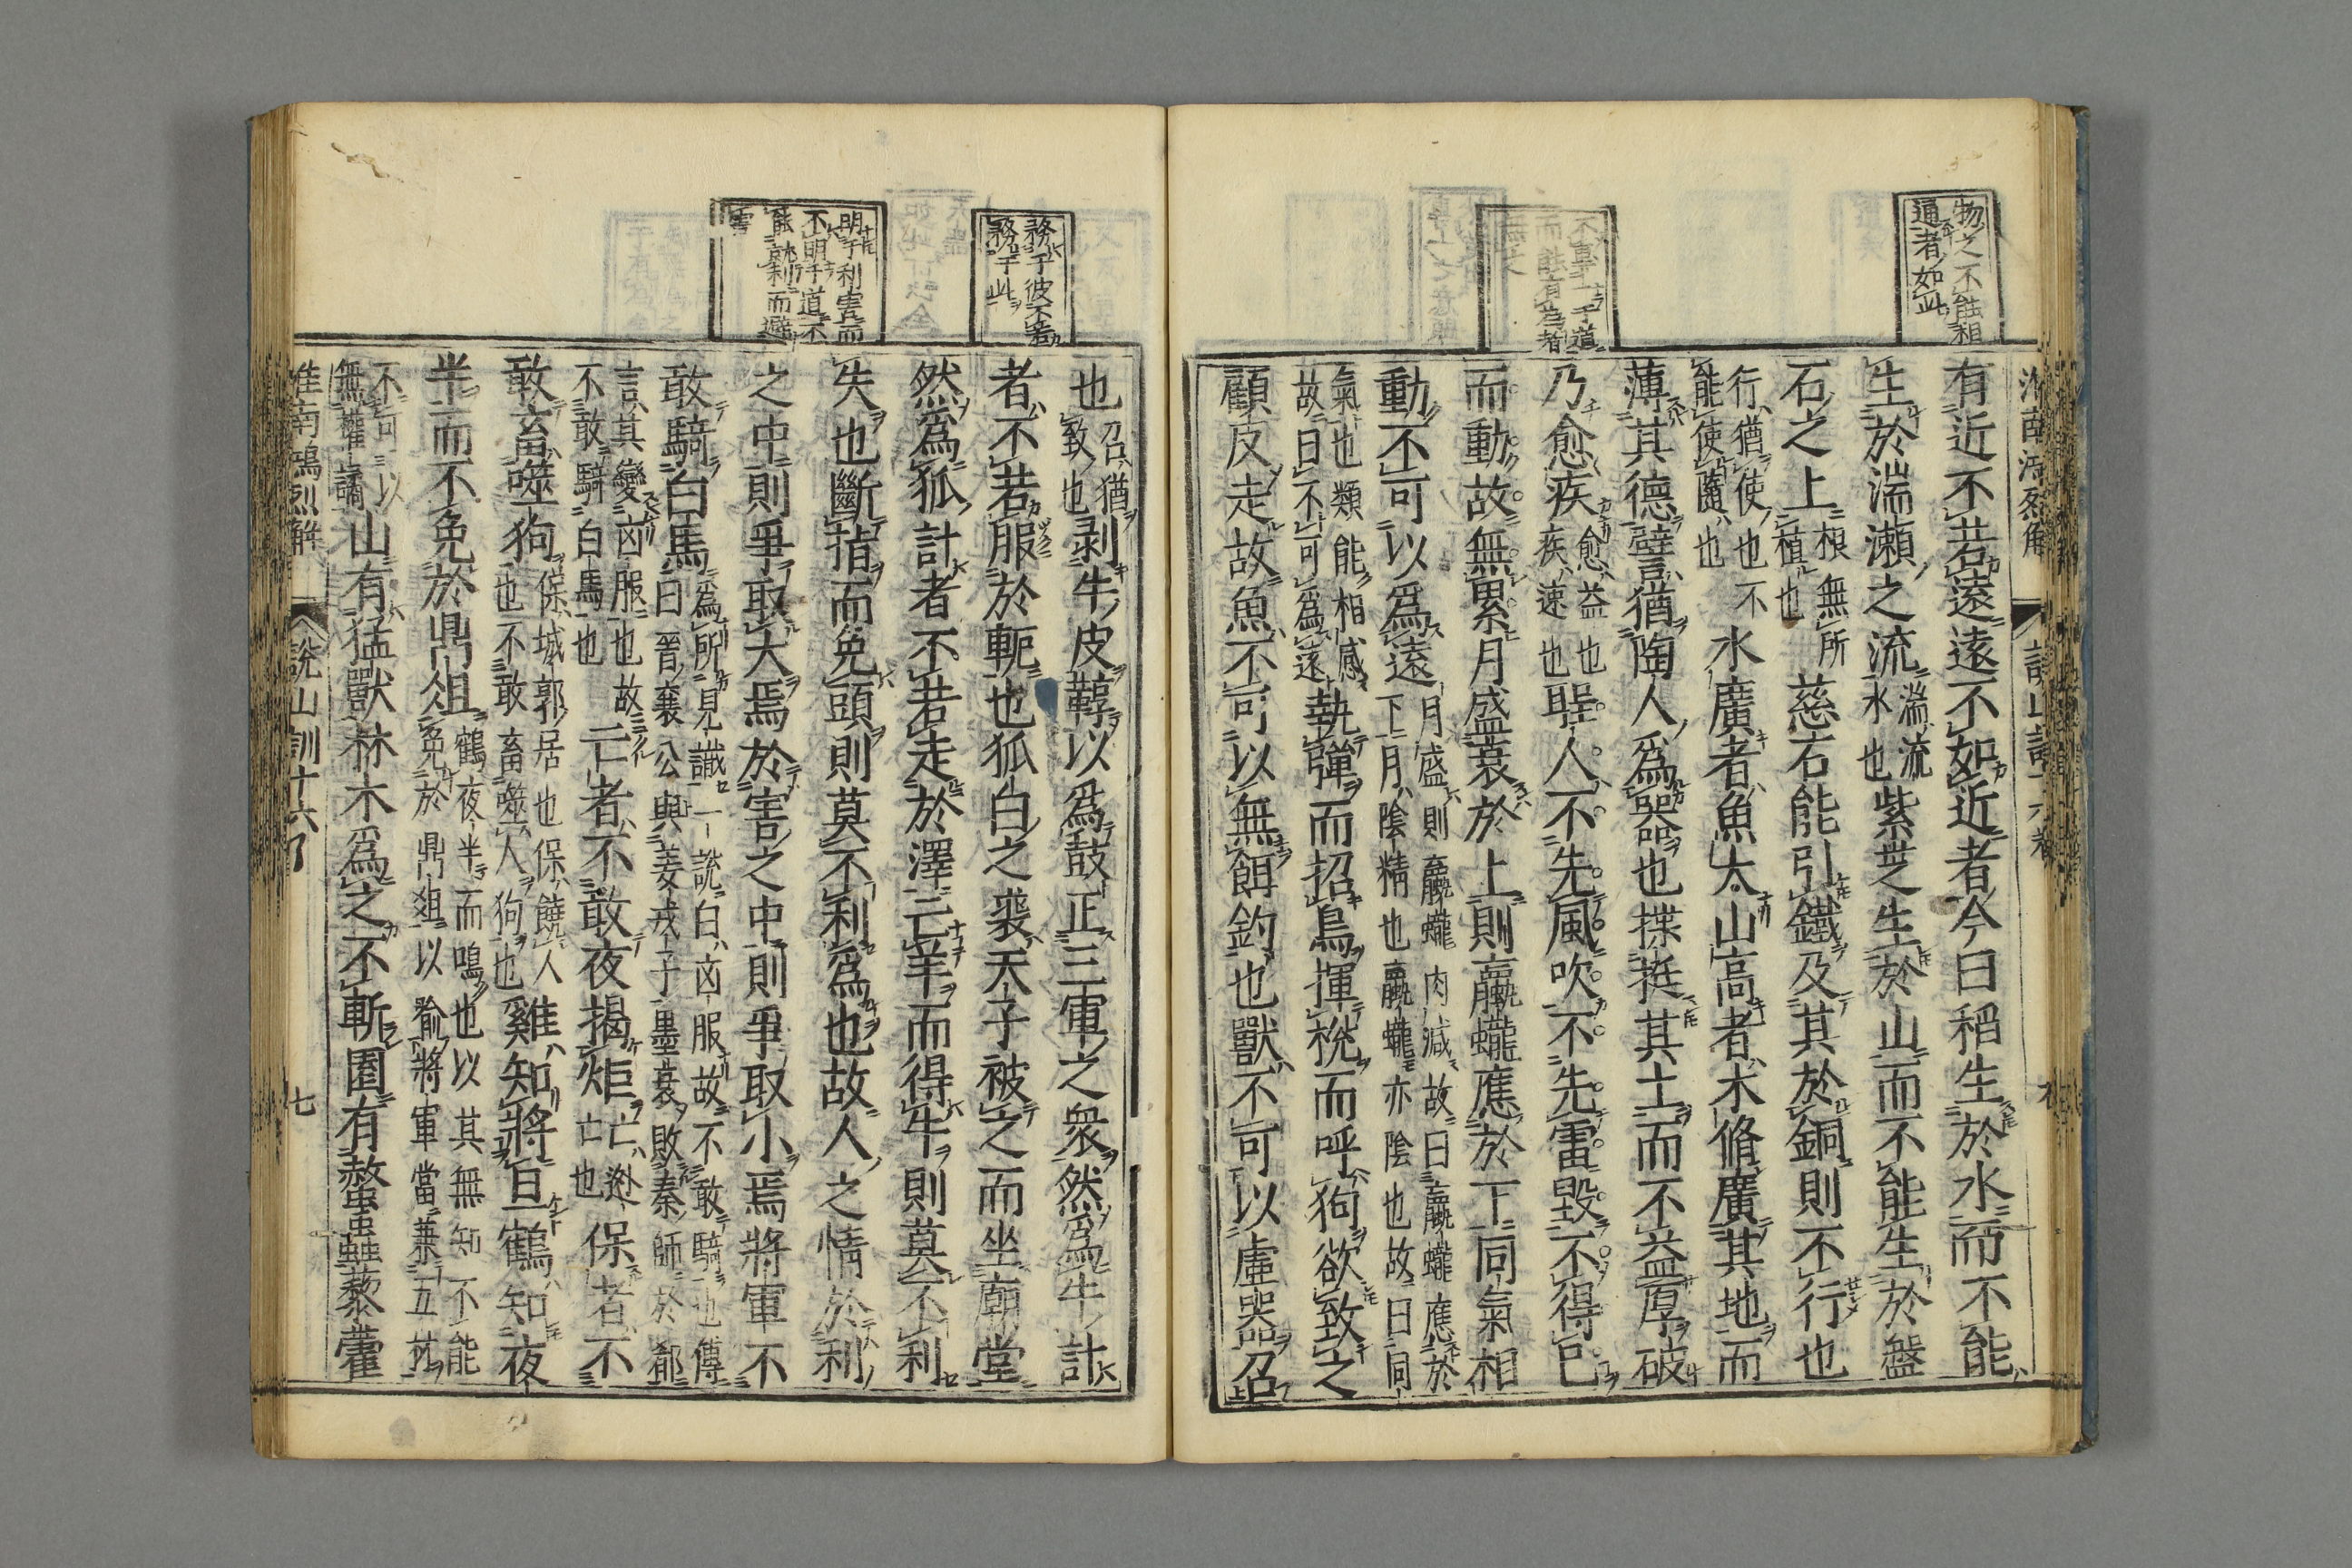 物之不能相
通者如此
有近不若遠遠不如近者今曰稻生於水而不能
生於湍瀨之流湍流
水也紫芝生於山而不能生於盤
石之上根無所
植也慈石能引鐵及其於銅則不行也
行猶使也不
能使隨也水廣者魚大山高者木脩廣其地而
薄其德譬猶陶人爲器也揲挻其土而不益厚破
乃愈疾愈益也
疾速也聖人不先風吹不先雷毀不得已
而動故無累月盛衰於上則蠃蠬應於下同氣相
動不可以爲遠月盛則蠃蠬肉減故曰蠃蠬應於
下月陰精也蠃蠬亦陰也故曰同
氣也類能相感
故曰不可爲遠執彈而招鳥揮梲而呼狗欲致之
顧反走故魚不可以無餌釣也獸不可以虛器召
務于彼不若
務于此
明于利害而
不明于道不
能就利而避
害
也召猶
致也剥牛皮鞟以爲鼓正三軍之衆然爲牛計
者不若服於軛也狐白之裘天子被之而坐廟堂
然爲狐計者不若走於澤亡羊而得牛則莫不利
失也斷指而免頭則莫不利爲也故人之情於利
之中則爭取大焉於害之中則爭取小焉將軍不
敢騎白馬爲所見識一說白凶服故不敢騎也傳
曰晉襄公與姜戎子墨衰敗秦師於殽
言其變凶服也故
不敢騎白馬也亡者不敢夜揭炬亡逃
亡也保者不
敢畜噬狗保城郭居也保饒人
也不敢畜噬人狗也雞知將旦鶴知夜
半而不免於鼎俎鶴夜半而鳴也以其無知不能
免於鼎俎以喻將軍當兼五材
不可以
無權譎山有猛獸林木爲之不斬園有螫蟲藜藿
淮南鴻烈解 說山訓十六卷 七